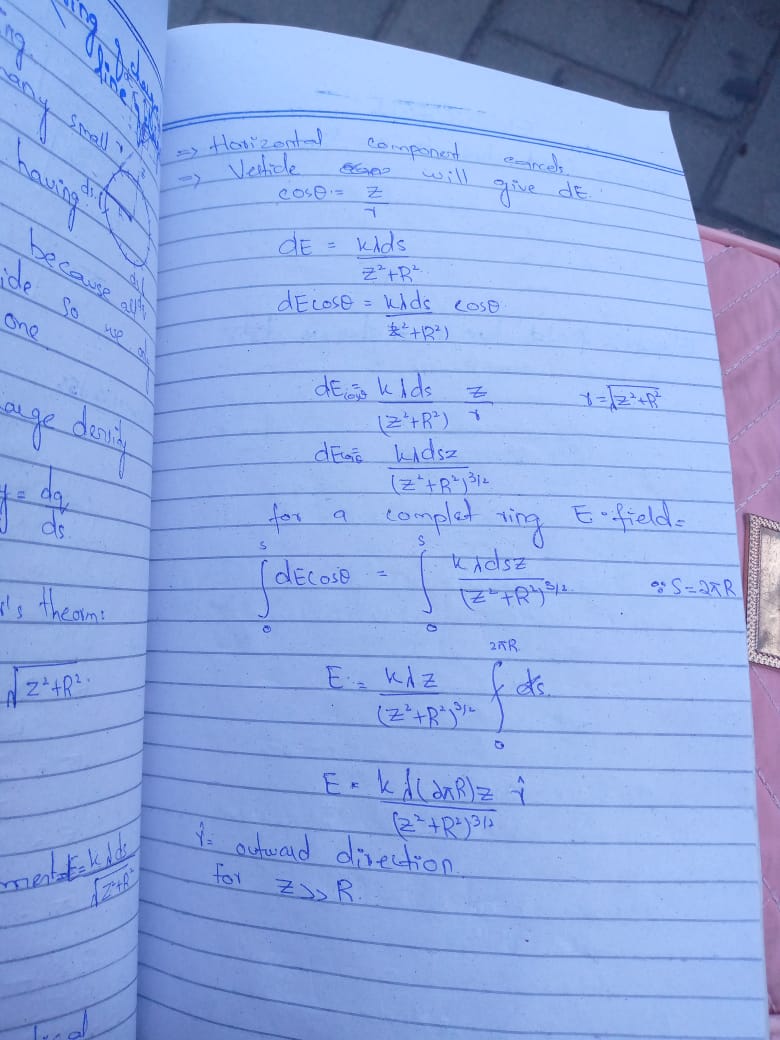 small
having
ds.
because
ide so we
one
density
= dq
ds.
's theorm:
√z²+R².
E = kλds
√z²+R²
=> Horizontal component cancels.
=> Verticle will give dE.
cosθ = z
r
dE = kλds
z²+R²
dEcosθ = kλds cosθ
z²+R²)
dEcosθ = kλds z r=√z²+R²
(z²+R²) r
dEcosθ = kλdsz
(z²+R²)3/2
for a complet ring E-field=
s s
∫dEcosθ = ∫ kλdsz ∵ S=2πR
(z²+R²)3/2
0 0
2πR
E = kλz ∫ ds.
(z²+R²)3/2
0
E = kλ(2πR)z r̂
(z²+R²)3/2
r̂= outward direction.
for z>>R.